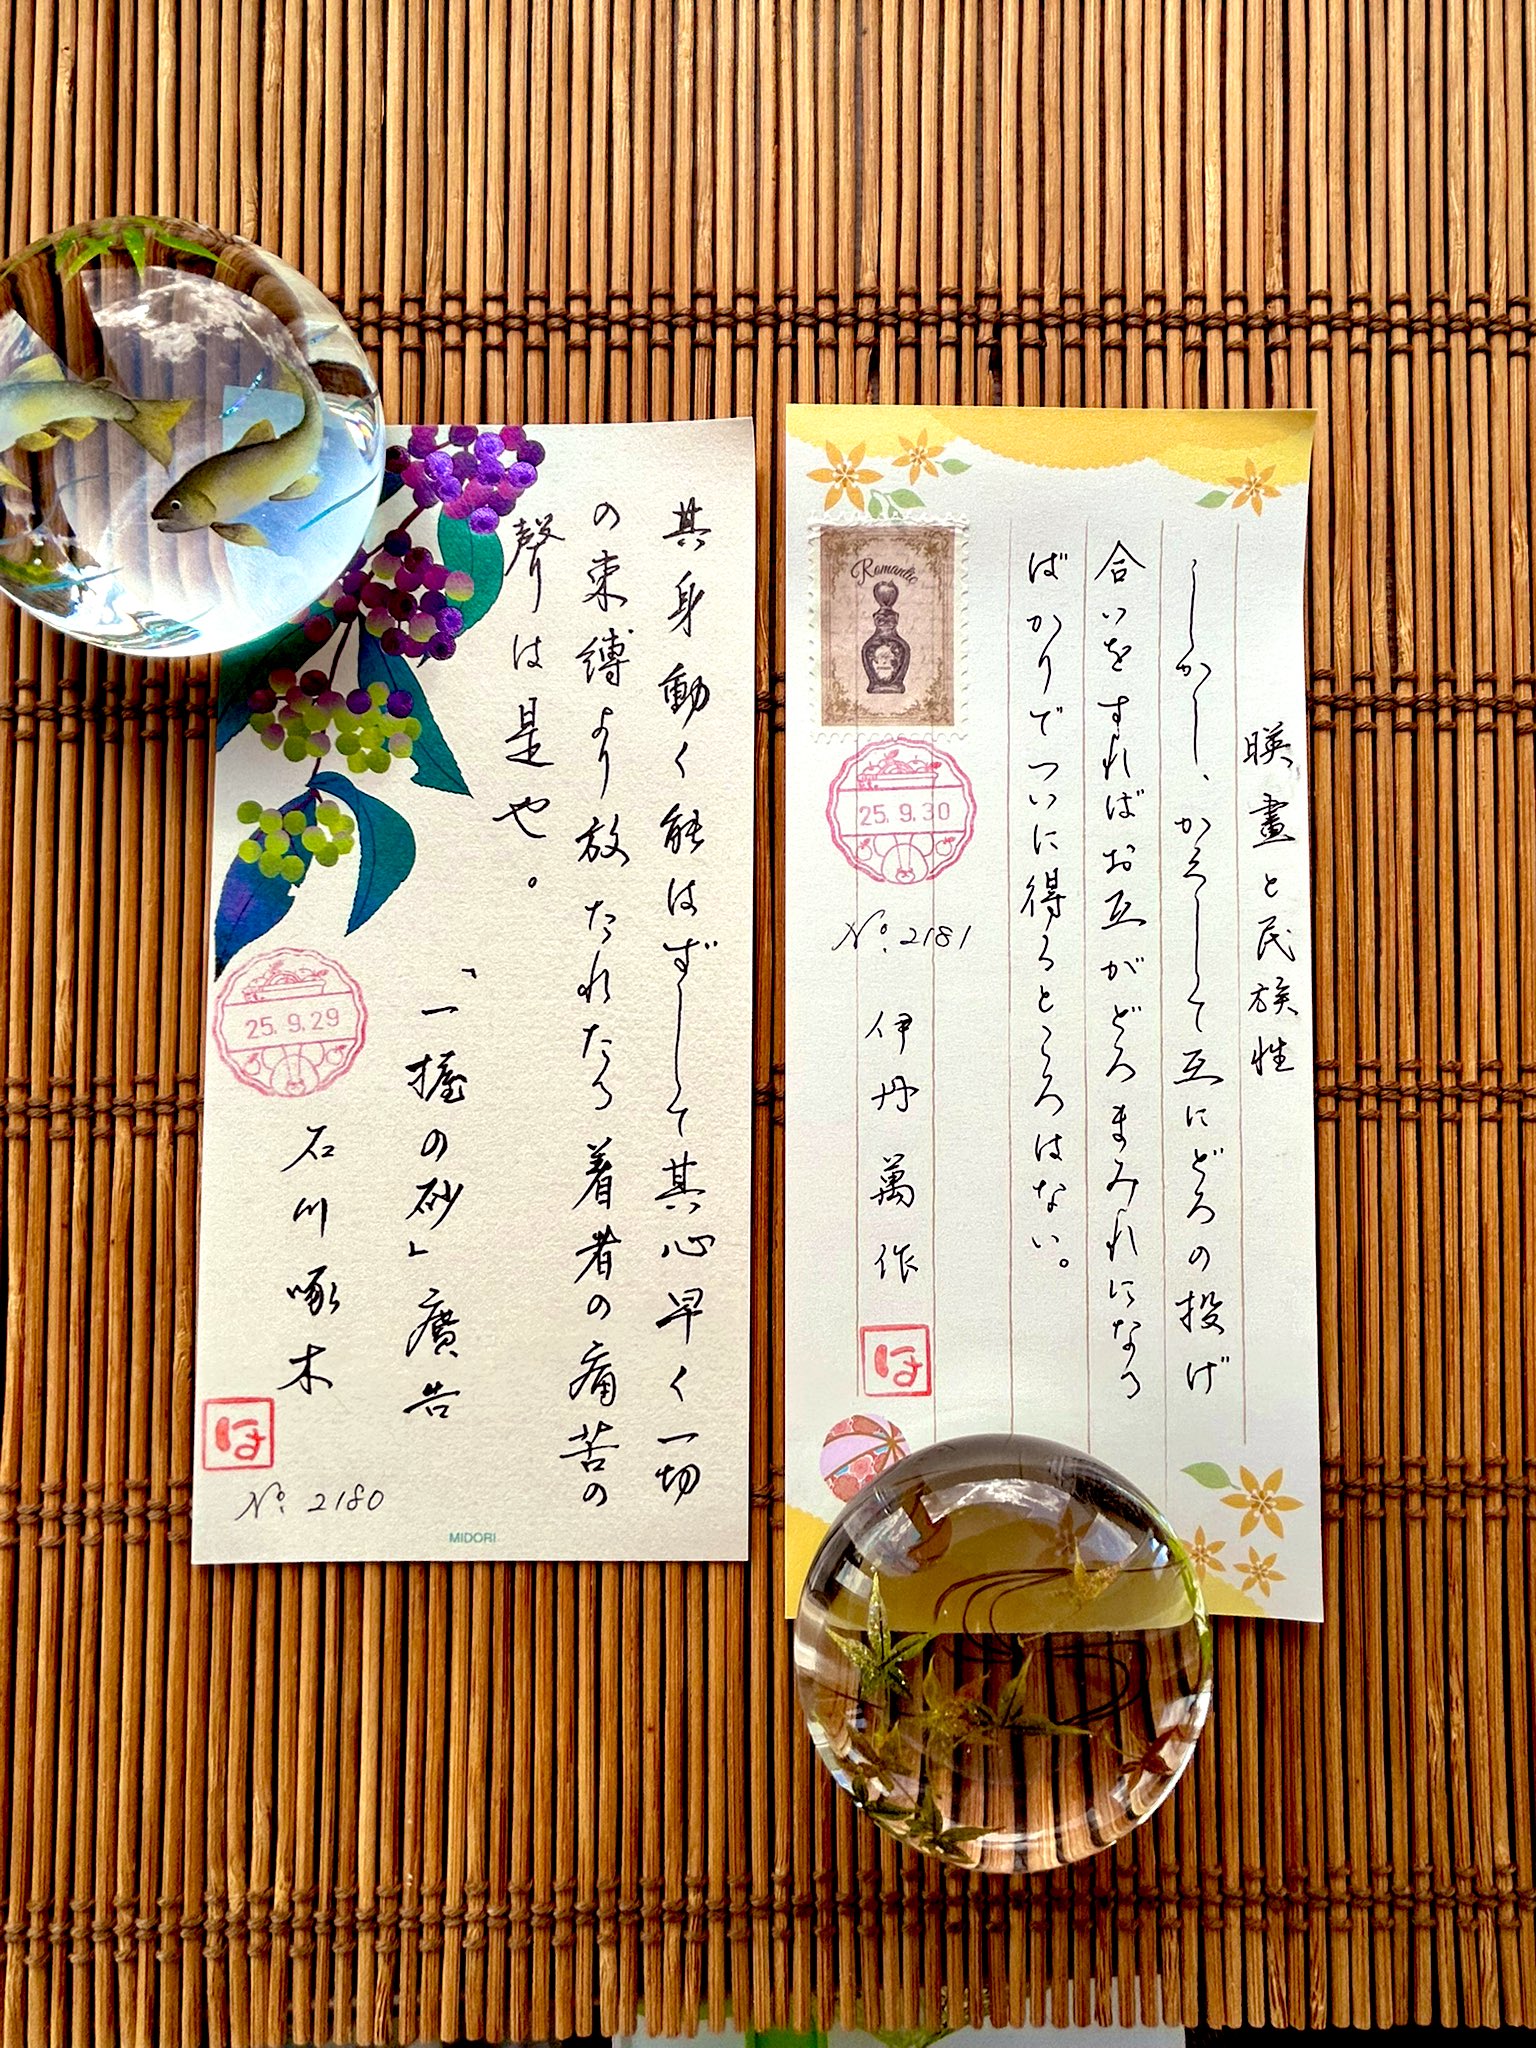 暎畫と民族性
しかし、かえして互にどろの投げ
合いをすればお互がどろまみれになる
ばかりでついに得るところはない。
Romantic
25.9.30
No. 2181
伊丹萬作
ほ
其身動く能はずして其心早く一切
の束縛より放たれたる着者の痛苦の
聲は是也。
「一握の砂」廣告
25.9.29
石川啄木
ほ
No. 2180
MIDORI